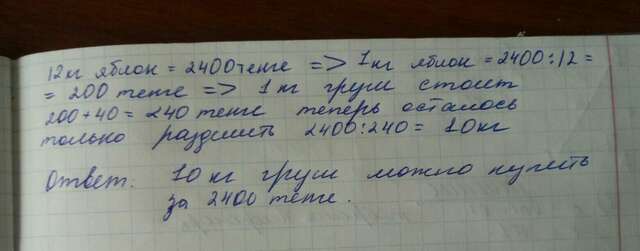 12кг яблок = 2400тенге => 1кг яблок = 2400:12 =
= 200 тенге => 1 кг груш стоит
200+40 = 240 тенге теперь осталось
только разделить 2400:240 = 10кг
Ответ: 10 кг груш можно купить
за 2400 тенге.